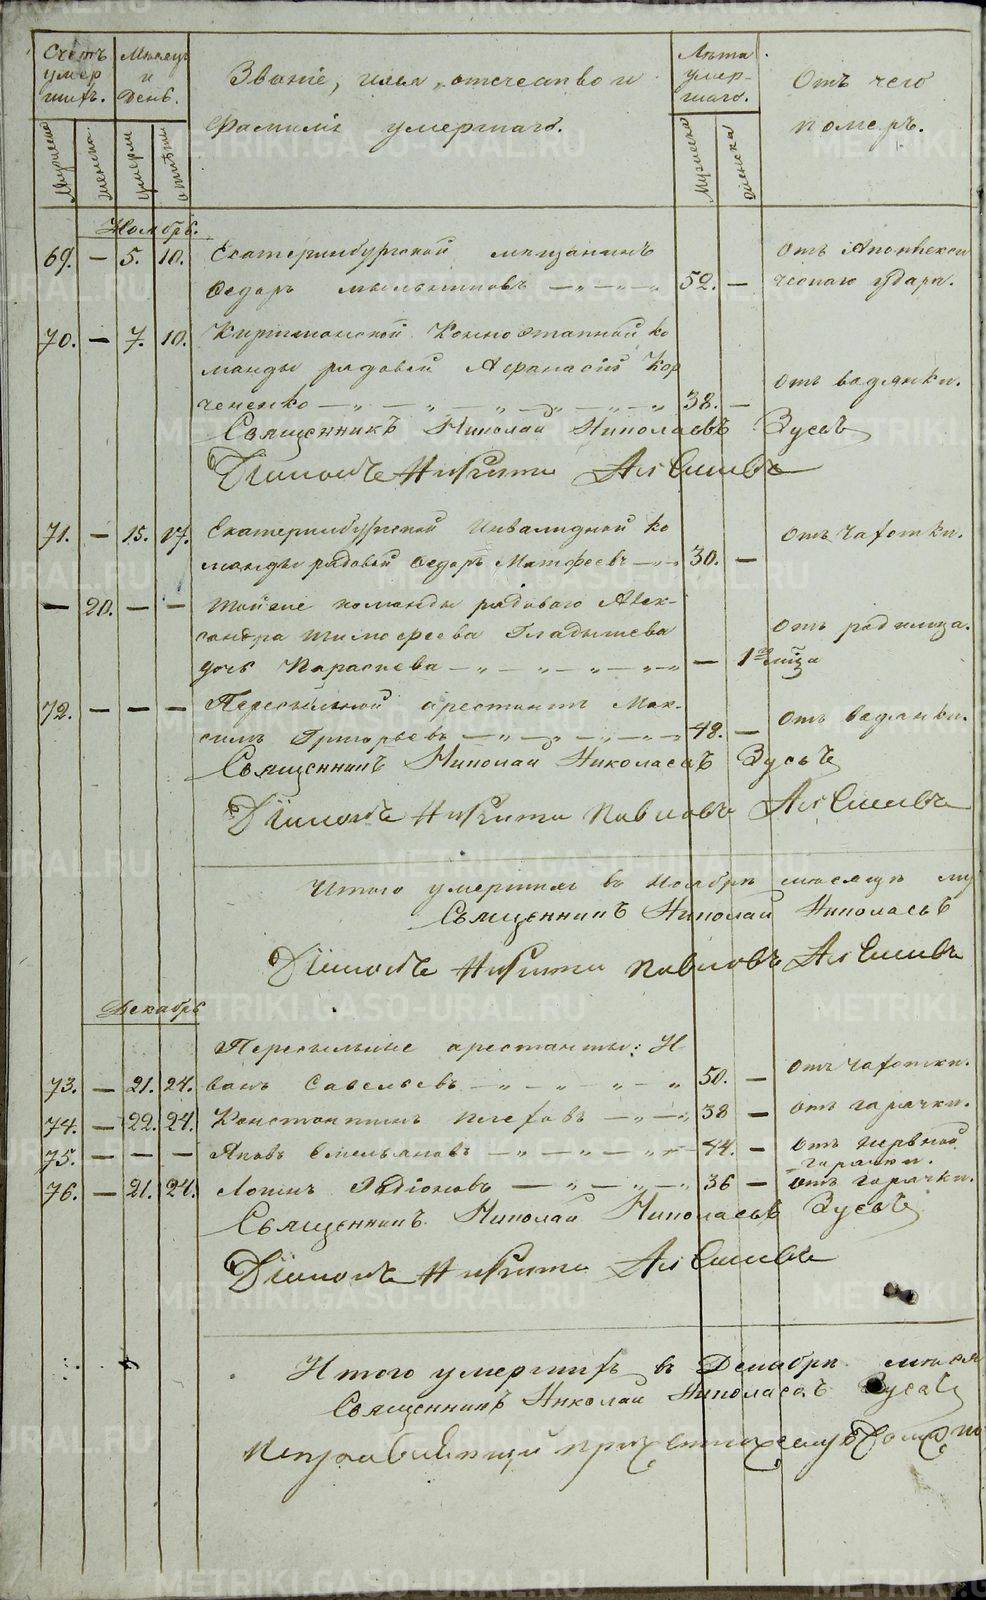 Счетъ умершихъ.
Мѣсяцъ и день.
Званіе, имя, отечество и фамилія умершаго.
Лѣта умершаго.
Отъ чего померъ.
Мужеска
Женска
умерли
Мужеска
Женска
Ноябрь.
69. — 5. 10. Екатеринбургской мещанинъ
Ѳедоръ — „ — „ — „ 52. —
Отъ Апоплексическаго удара.
70. — 7. 10. Конноэтапной ко
манды рядовой Афанасій Кор
ченко — „ — „ — „ — „ — „ 38. —
отъ водянки.
Священникъ Николай Николаевъ Зусевъ
Діаконъ Никита
71. — 15. 17. Екатеринбургской Инвалидной ко
манды рядовой Ѳедоръ Матфеевъ — „ 30. —
отъ чахотки.
— 20. — — Тойже команды рядоваго Алек-
сандра Тимофеева Гладышева
дочь Параскева — „ — „ — „ — „ — 1
отъ родимца.
72. — — — Пересыльной арестантъ Мак-
симъ Григорьевъ — „ — „ — „ — „ 48. —
отъ водянки.
Священникъ Николай Николаевъ Зусевъ
Діаконъ Никита Павловъ
Итого умершихъ въ Ноябрѣ мѣсяцѣ му
Священникъ Николай Николаевъ
Діаконъ Никита Павловъ
Декабрь
Пересыльные арестанты: И
73. — 21. 24. ванъ Савельевъ — „ — „ — „ 50. —
отъ чахотки.
74. — 22. 24. Константинъ — „ — „ 38 —
отъ горячки.
75. — — — Яковъ Емельяновъ — „ — „ — „ 44. —
отъ нервной горячки.
76. — 21. 24. Родіоновъ — „ — „ — „ 36 —
отъ горячки.
Священникъ Николай Николаевъ Зусевъ
Діаконъ Никита
Итого умершихъ въ Декабрѣ мѣся
Священникъ Николай Николаевъ Зусевъ
METRIKI.GASO-URAL.RU